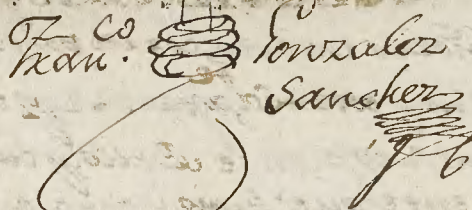 Fran.co Gonzalez
Sanchez